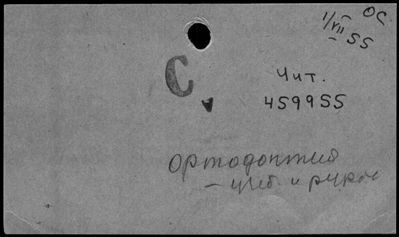 ОС
1/VII 55
С
Чит.
459955
Ортодонтия
– учеб. и руков